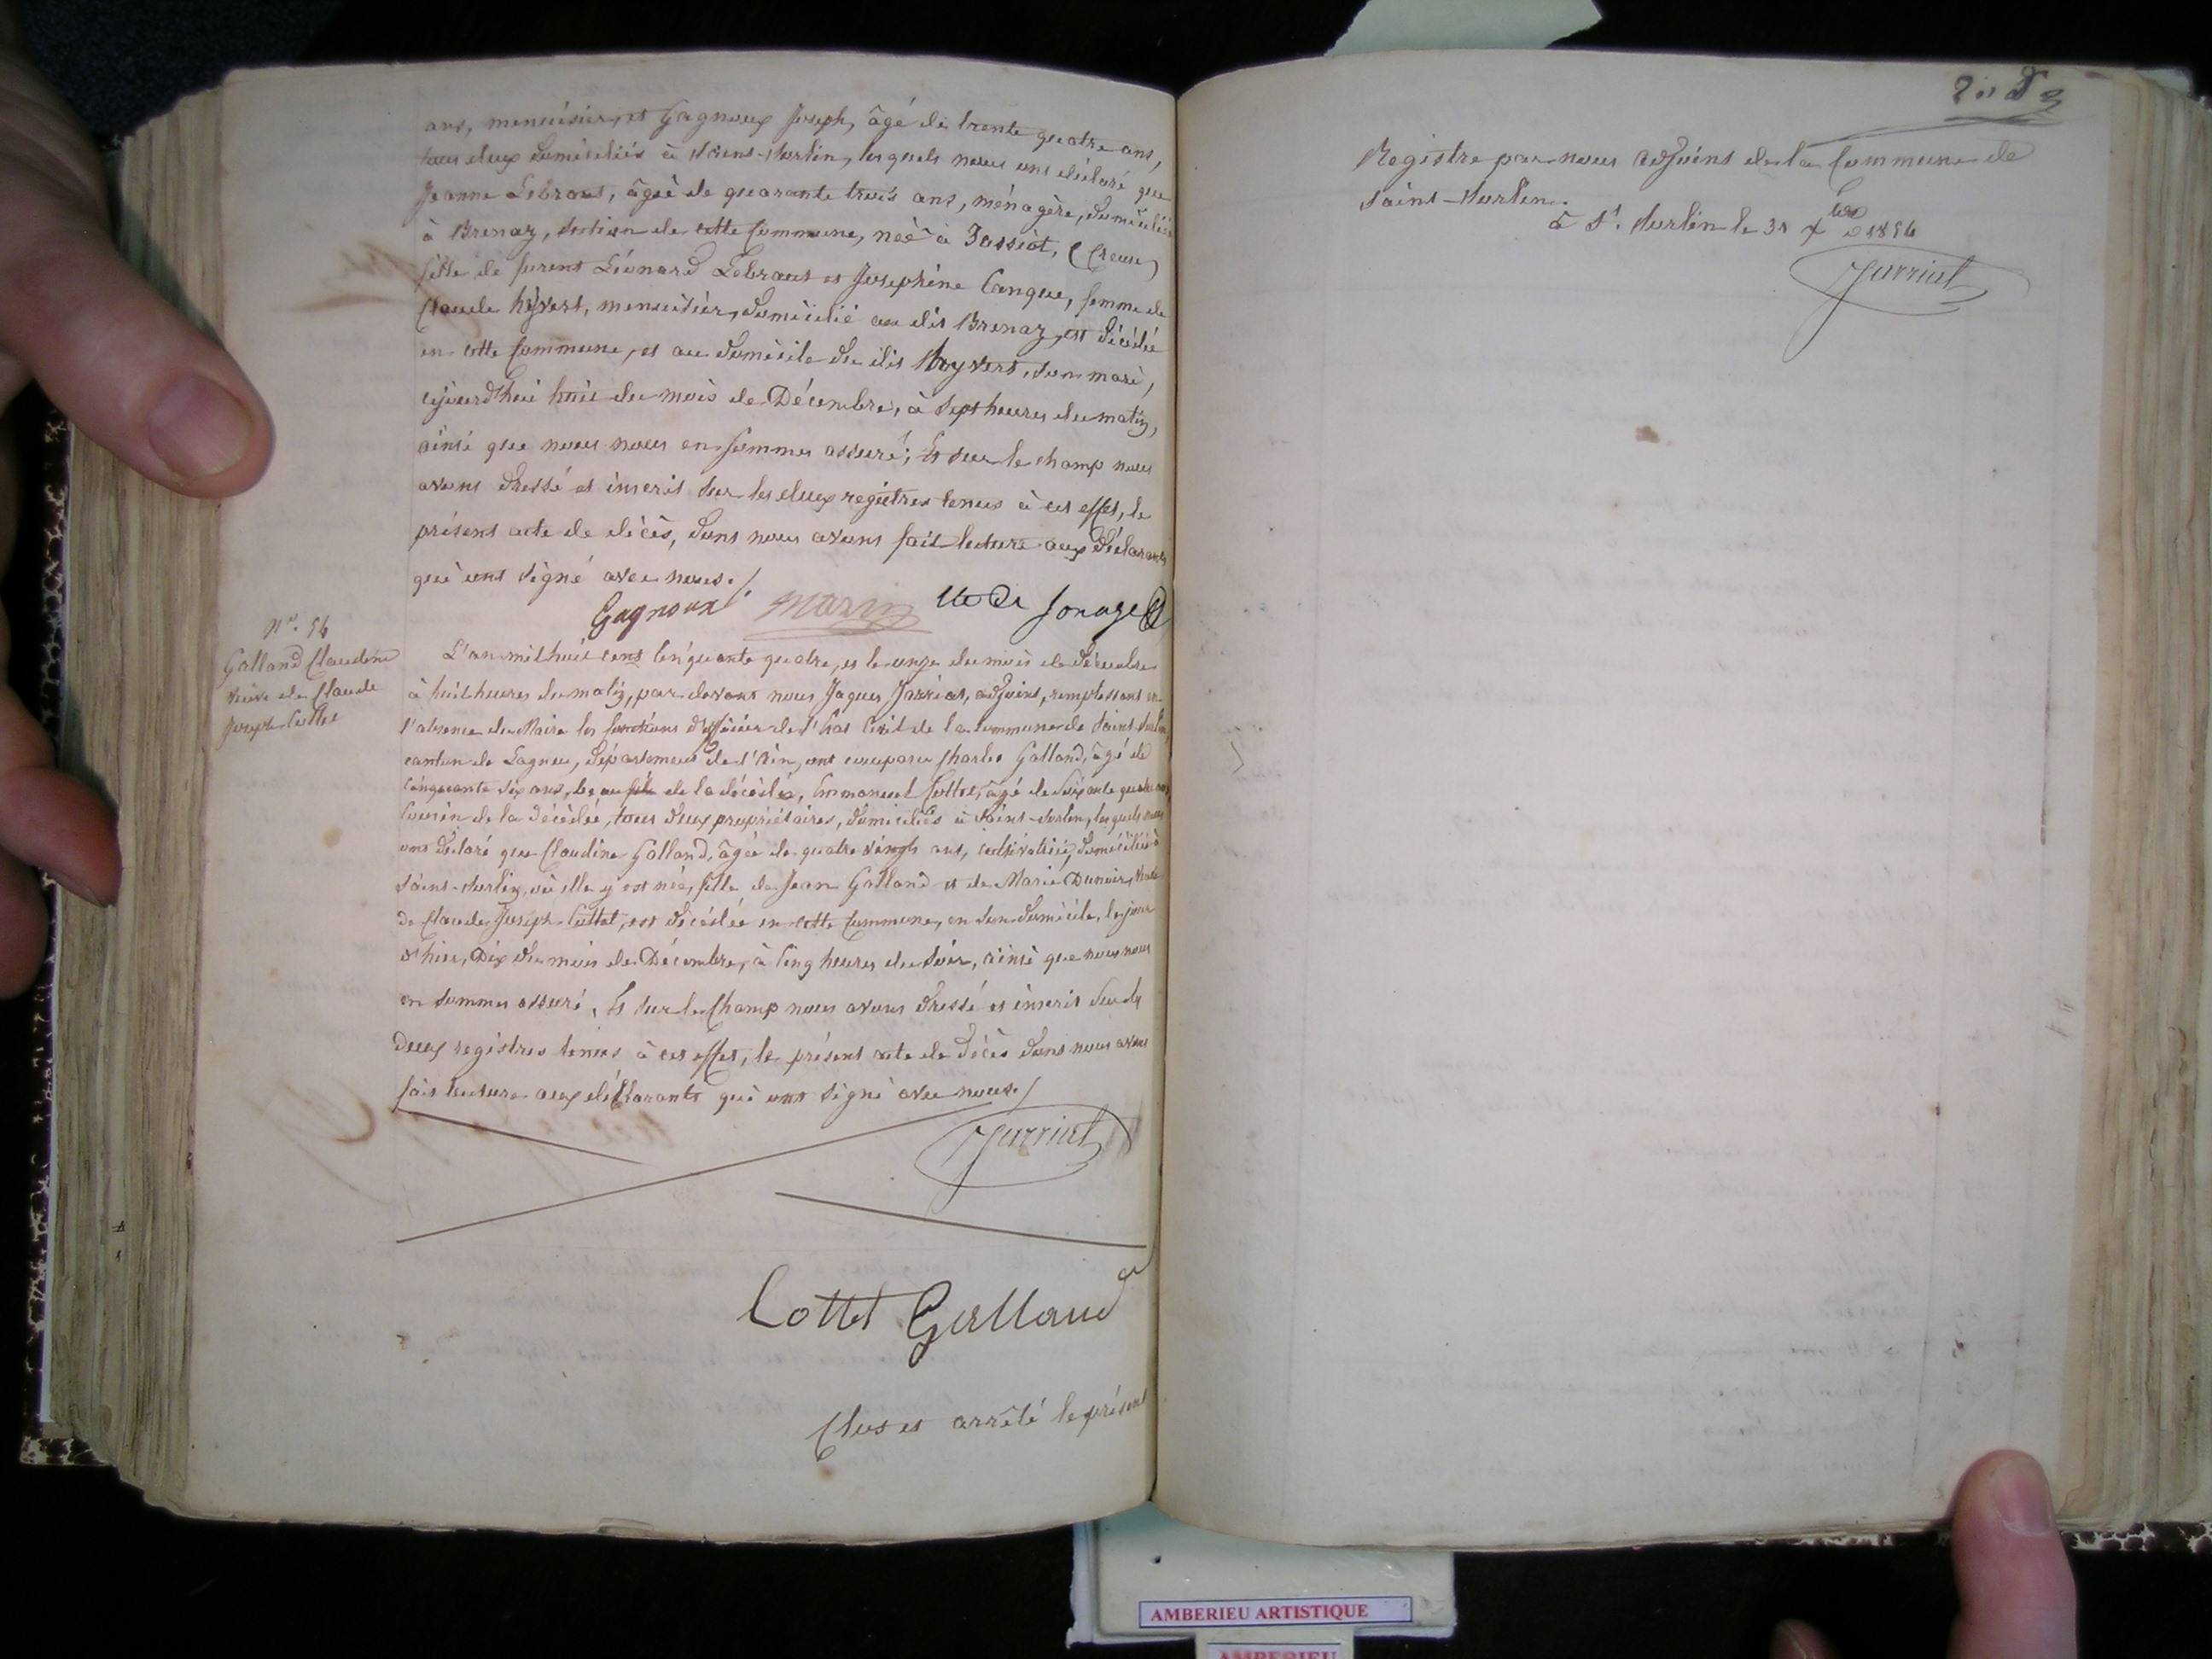 ans, menuisier, et Gagnoux Joseph, âgé de trente quatre ans,
tous deux domiciliés à Saint-Sorlin, lesquels nous ont déclaré que
Jeanne Lebraus, âgée de quarante trois ans, ménagère, domiciliée
à Brenaz, section de cette Commune, née à (Creuse)
fille de furent Léonard Lebraus et Joséphine Canque, femme de
Claude Hyvert, menuisier, domicilié au dit Brenaz, est décédée
en cette Commune, et au domicile du dit Hyvert, son mari,
aujourd'hui huit du mois de Décembre, à sept heures du matin,
ainsi que nous nous en sommes assuré; Et sur le champ nous
avons dressé et inscrit sur les deux registres tenus à cet effet, le
présent acte de décès, dont nous avons fait lecture aux déclarants
qui ont signé avec nous./
Gagnoux Marin
N°. 54
Galland Claudine
veuve de Claude
Joseph Cottet
L'an mil huit cent cinquante quatre, et le onze du mois de décembre
à huit heures du matin, par devant nous Jaques Jarriat, adjoint, remplissant en
l'absence du Maire les fonctions d'officier de l'état Civil de la commune de Saint-Sorlin,
canton de Lagnieu, département de l'Ain, ont comparu Charles Galland, âgé de
cinquante six ans, beau fils de la décédée, Emmanuel Cottet, âgé de soixante quatre ans,
cousin de la décédée, tous deux propriétaires, domiciliés à Saint-Sorlin, lesquels nous
ont déclaré que Claudine Galland, âgée de quatre vingts ans, cultivatrice, domiciliée à
Saint-Sorlin, où elle y est née, fille de Jean Galland et de Marie Dunoir, veuve
de Claude Joseph Cottet, est décédée en cette Commune, en son domicile, le jour
d'hier, Dix du mois de Décembre, à cinq heures du soir, ainsi que nous nous
en sommes assuré, Et sur le Champ nous avons dressé et inscrit sur les
deux registres tenus à cet effet, le présent acte de décès dont nous avons
fait lecture aux déclarants qui ont signé avec nous./
Jarriat
Cottet Galland
Clos et arrêté le présent
Registre par nous adjoint de la Commune de
Saint-Sorlin.
à St. Sorlin le 31 Xbre 1854
Jarriat
AMBERIEU ARTISTIQUE
AMBERIEU